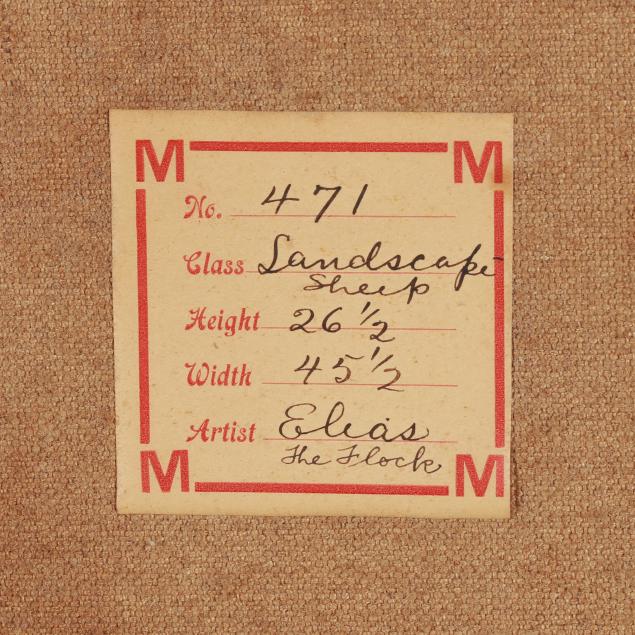 M M
No. 471
Class Landscape
Sheep
Height 26 1/2
Width 45 1/2
Artist Elias
The Flock
M M